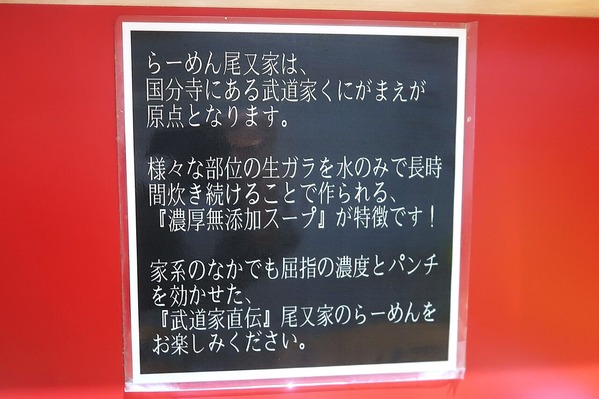 らーめん尾又家は、
国分寺にある武道家くにがまえが
原点となります。
様々な部位の生ガラを水のみで長時
間炊き続けることで作られる、
『濃厚無添加スープ』が特徴です！
家系のなかでも屈指の濃度とパンチ
を効かせた、
『武道家直伝』尾又家のらーめんを
お楽しみください。